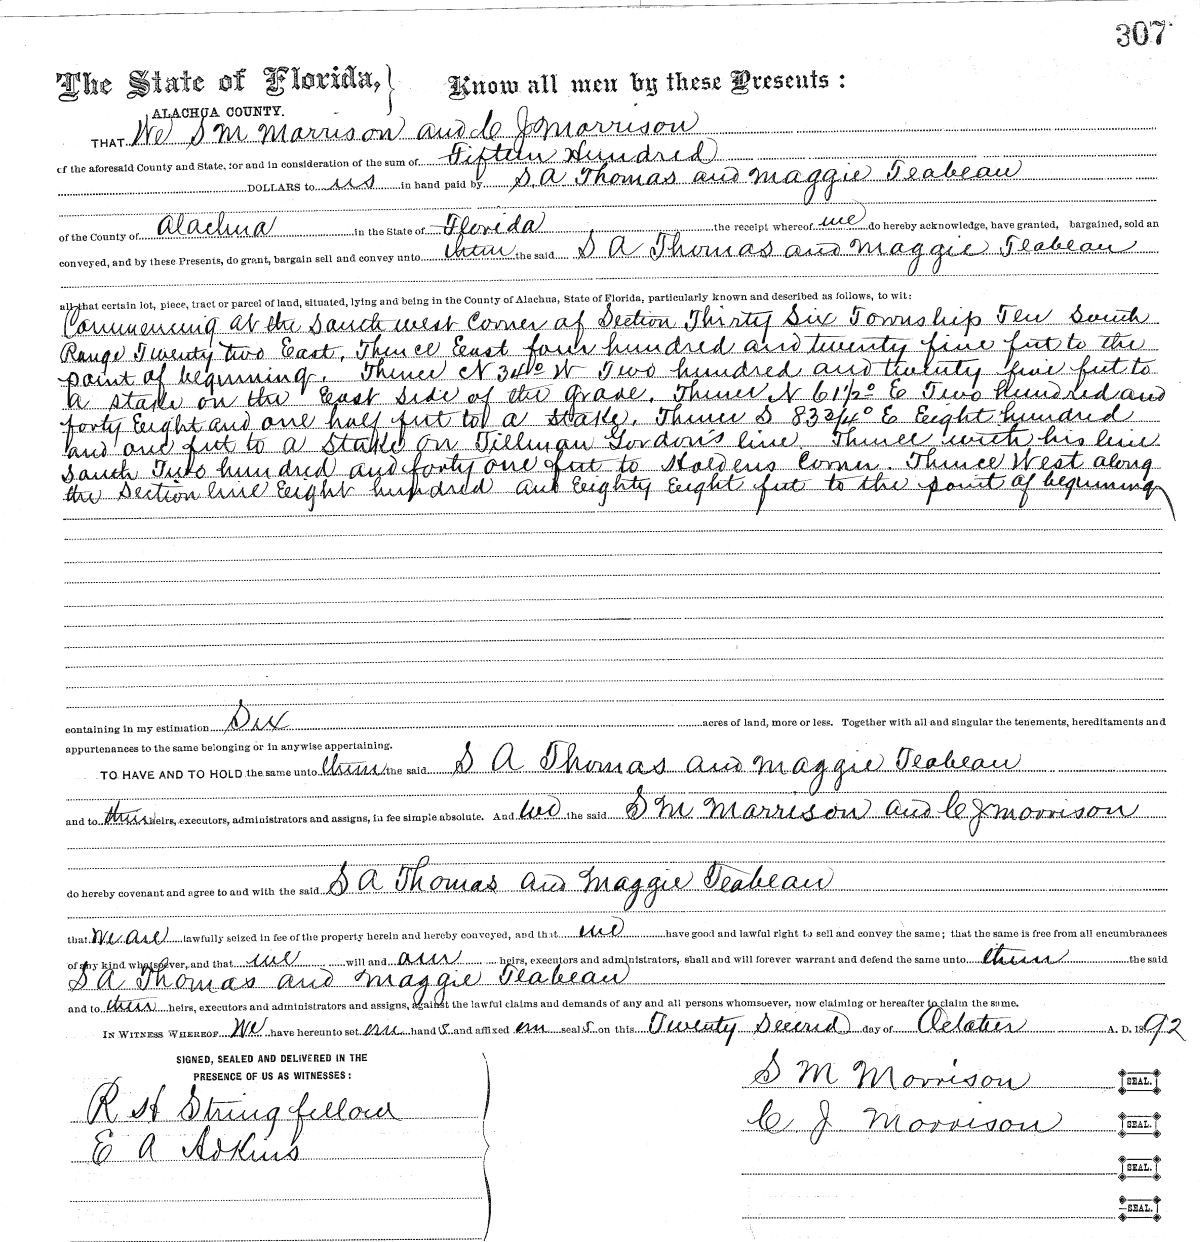 307
The State of Florida, } Know all men by these Presents :
ALACHUA COUNTY.
THAT We S M Morrison and C J Morrison
of the aforesaid County and State, for and in consideration of the sum of Fifteen Hundred
DOLLARS to us in hand paid by S. A Thomas and Maggie Teabeau
of the County of Alachua in the State of Florida the receipt whereof we do hereby acknowledge, have granted, bargained, sold an
conveyed, and by these Presents, do grant, bargain sell and convey unto them the said S A Thomas and Maggie Teabeau
all that certain lot, piece, tract or parcel of land, situated, lying and being in the County of Alachua, State of Florida, particularly known and described as follows, to wit:
Commencing at the South west Corner of Section Thirty Six Township Ten South
Range Twenty two East, Thence East four hundred and twenty five feet to the
point of beginning. Thence N 34° W Two hundred and twenty five feet to
a stake on the East side of the grave. Thence N 61 1/2° E Two hundred and
forty Eeight and one half feet to a Stake. Thence S 83 3/4° E Eeight hundred
and one feet to a Stake on Tillman Gordon's line Thence with his line
South Two hundred and forty one feet to Holdens Corner. Thence West along
the Section line Eeight hundred and Eeighty Eeight feet to the point of beginning
containing in my estimation Six acres of land, more or less. Together with all and singular the tenements, hereditaments and
appurtenances to the same belonging or in anywise appertaining.
TO HAVE AND TO HOLD the same unto them the said S A Thomas and Maggie Teabeau
and to their heirs, executors, administrators and assigns, in fee simple absolute. And we the said S M Morrison and C J Morrison
do hereby covenant and agree to and with the said S A Thomas and Maggie Teabeau
that We are lawfully seized in fee of the property herein and hereby conveyed, and that we have good and lawful right to sell and convey the same; that the same is free from all encumbrances
of any kind whatsoever, and that we will and our heirs, executors and administrators, shall and will forever warrant and defend the same unto them the said
S A Thomas and Maggie Teabeau
and to their heirs, executors and administrators and assigns, against the lawful claims and demands of any and all persons whomsoever, now claiming or hereafter to claim the same.
IN WITNESS WHEREOF We have hereunto set our hand s and affixed our seal s on this Twenty Second day of October A. D. 1892
SIGNED, SEALED AND DELIVERED IN THE
PRESENCE OF US AS WITNESSES :
R H Stringfellow
E A Adkins
S M Morrison SEAL.
C J Morrison SEAL.
SEAL.
SEAL.